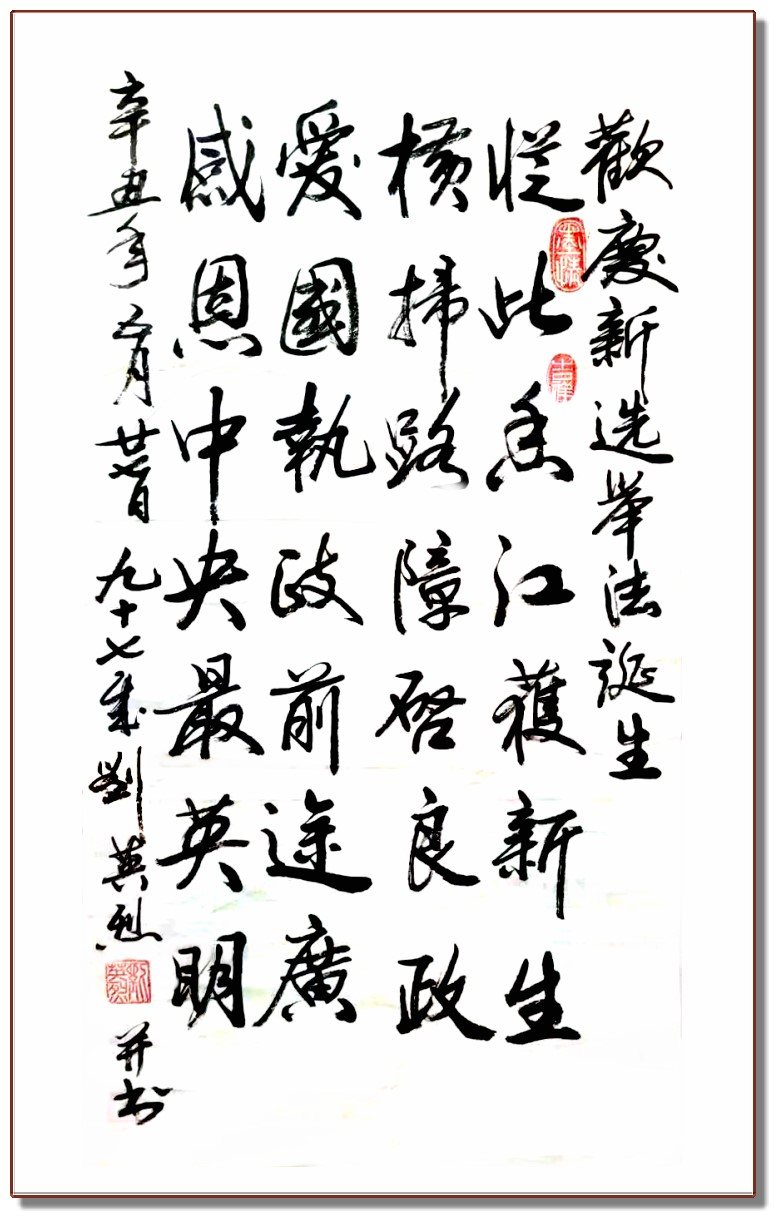 歡慶新选舉法誕生
從此香江獲新生
橫掃路障啓良政
愛國執政前途廣
感恩中央最英明
辛丑年 五月 廿七日 九十七歲 劉英烈 并书